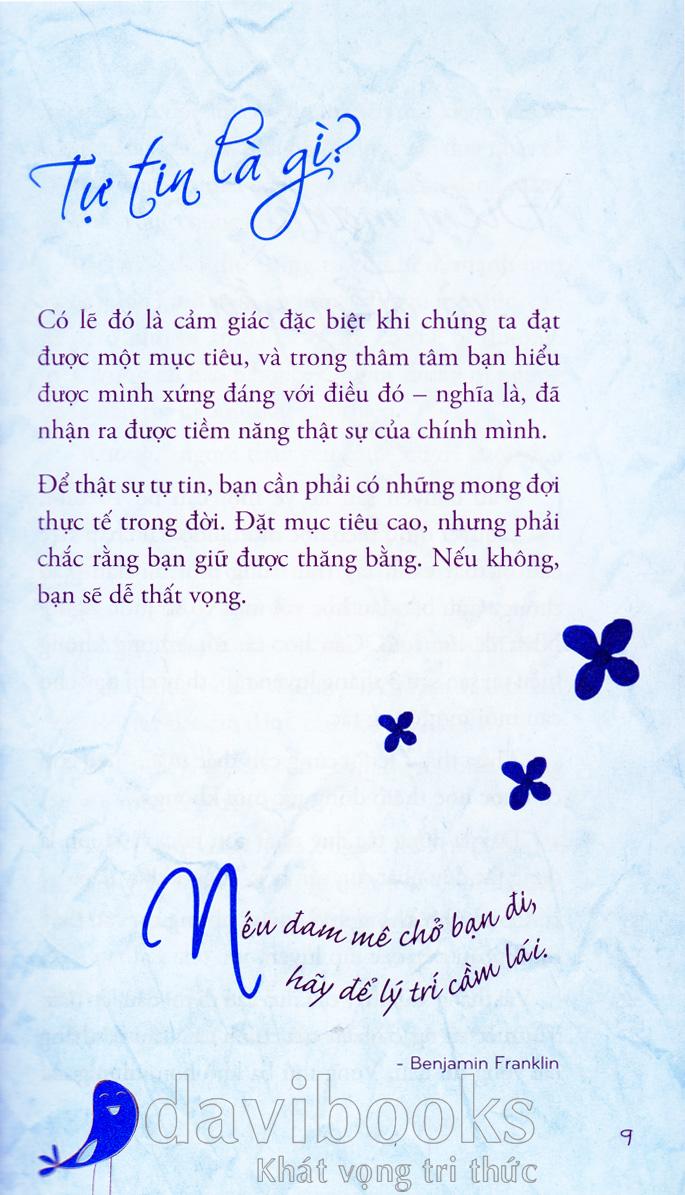 Tự tin là gì?
Có lẽ đó là cảm giác đặc biệt khi chúng ta đạt
được một mục tiêu, và trong thâm tâm bạn hiểu
được mình xứng đáng với điều đó – nghĩa là, đã
nhận ra được tiềm năng thật sự của chính mình.
Để thật sự tự tin, bạn cần phải có những mong đợi
thực tế trong đời. Đặt mục tiêu cao, nhưng phải
chắc rằng bạn giữ được thăng bằng. Nếu không,
bạn sẽ dễ thất vọng.
Nếu đam mê chở bạn đi,
hãy để lý trí cầm lái.
- Benjamin Franklin
davibooks
Khát vọng tri thức
9